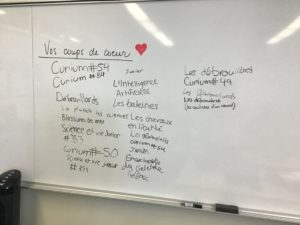 Vos coups de coeur
Curium #54
Curium #54
Débrouillards
La planète les sciences
Blessures de
Science et vie Junior
#353
Curium #=50
Science et vie junior
#353
Junior
L'Intelligence
Artificielle
Les baleines
Les chevaux
en liberté
Les débrouillards
curium #54
Encyclopédie
Les débrouillards
Curium #49
Les Débrouillards
Les débrouillards